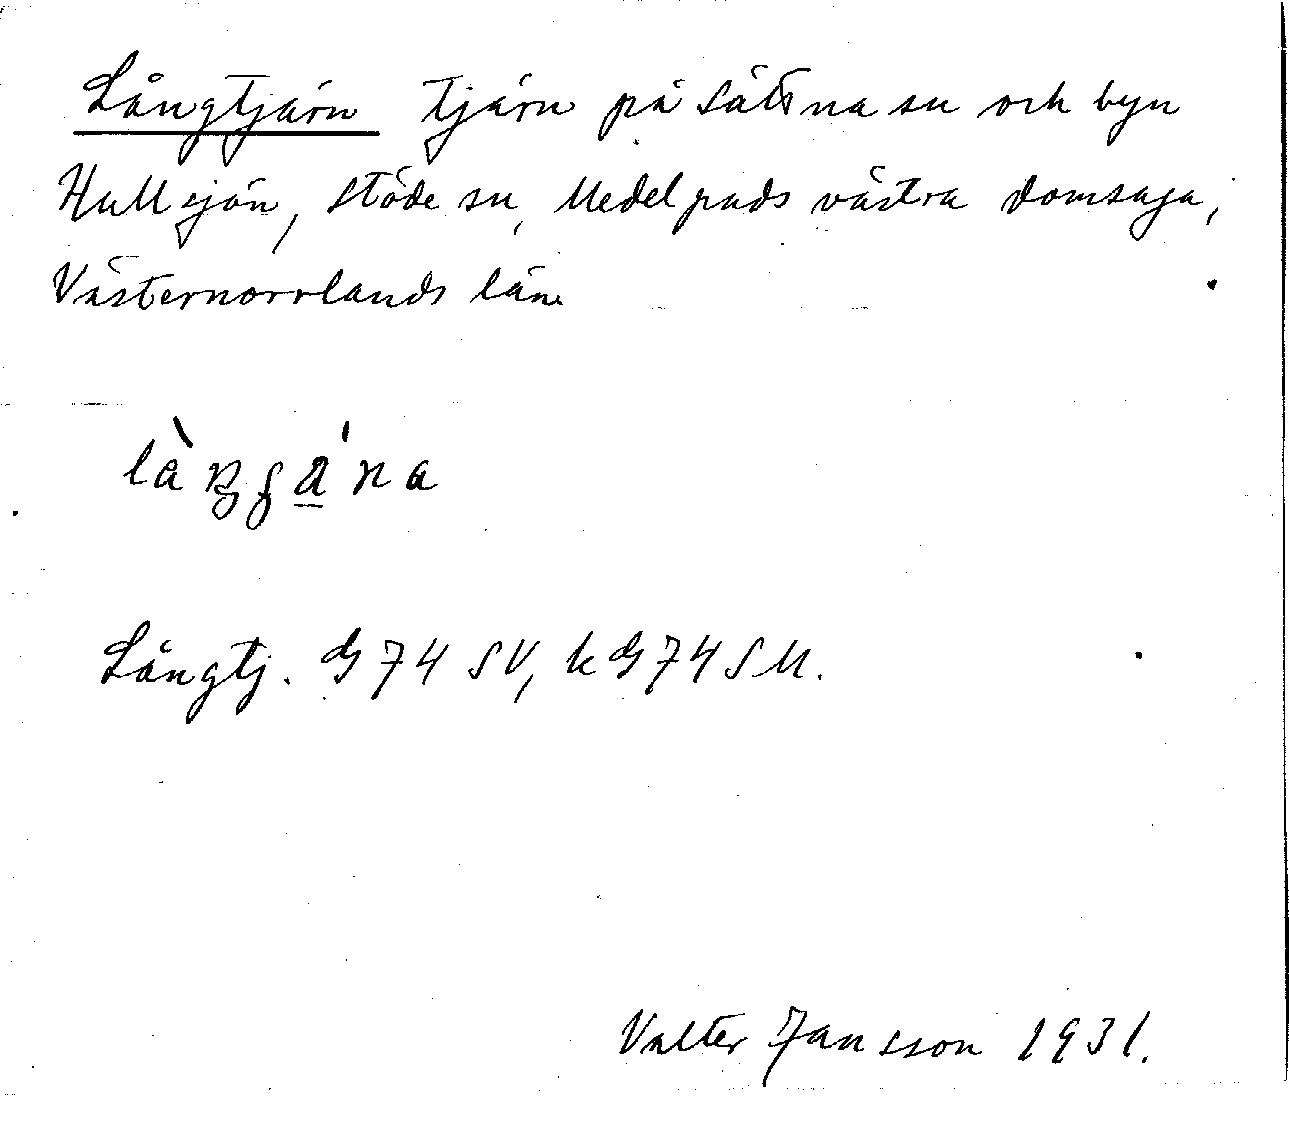 Långtjärn tjärn på Sättna sn och byn
Hullsjön, Stöde sn, Medelpads västra domsaga,
Västernorrlands län
Långtj. G 74 SV, k G 74 SM.
Valter Jansson 1931.